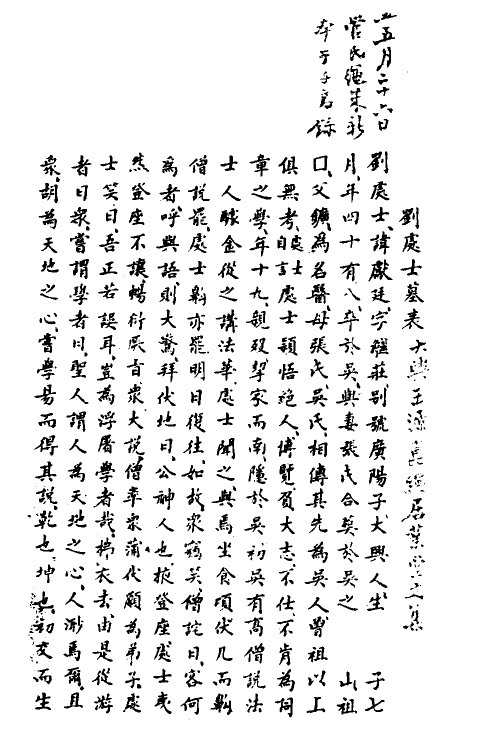 劉處士墓表 大興王源崑繩居業堂文集
五月二十六日
劉處士諱獻廷字繼莊別號廣陽子大興人生 子七
月年四十有八卒於吳與妻張氏合葬於吳之 山祖
口父鑛為名醫母張氏吳氏相傳其先為吳人曾祖以上
俱無考處士自言處士穎悟絕人博覽負大志不仕不肯為詞
章之學年十九親歿挈家而南隱於吳初吳有高僧說法
士人醵金從之講法華處士聞之與焉坐食頃伏几而鼾
僧說罷處士鼾亦罷明日復往如故眾竊笑僧詫曰客何
為者呼與語則大驚拜伏地曰公神人也掖登座處士夷
然登座不讓暢衍厥旨眾大說僧率眾蒲伏願為弟子處
士笑曰吾正若誤耳豈為浮屠學者哉拂衣去由是從游
者日眾嘗謂學者曰聖人謂人為天地之心人渺焉爾且
眾胡為天地之心嘗學易而得其說乾也坤也初交而生